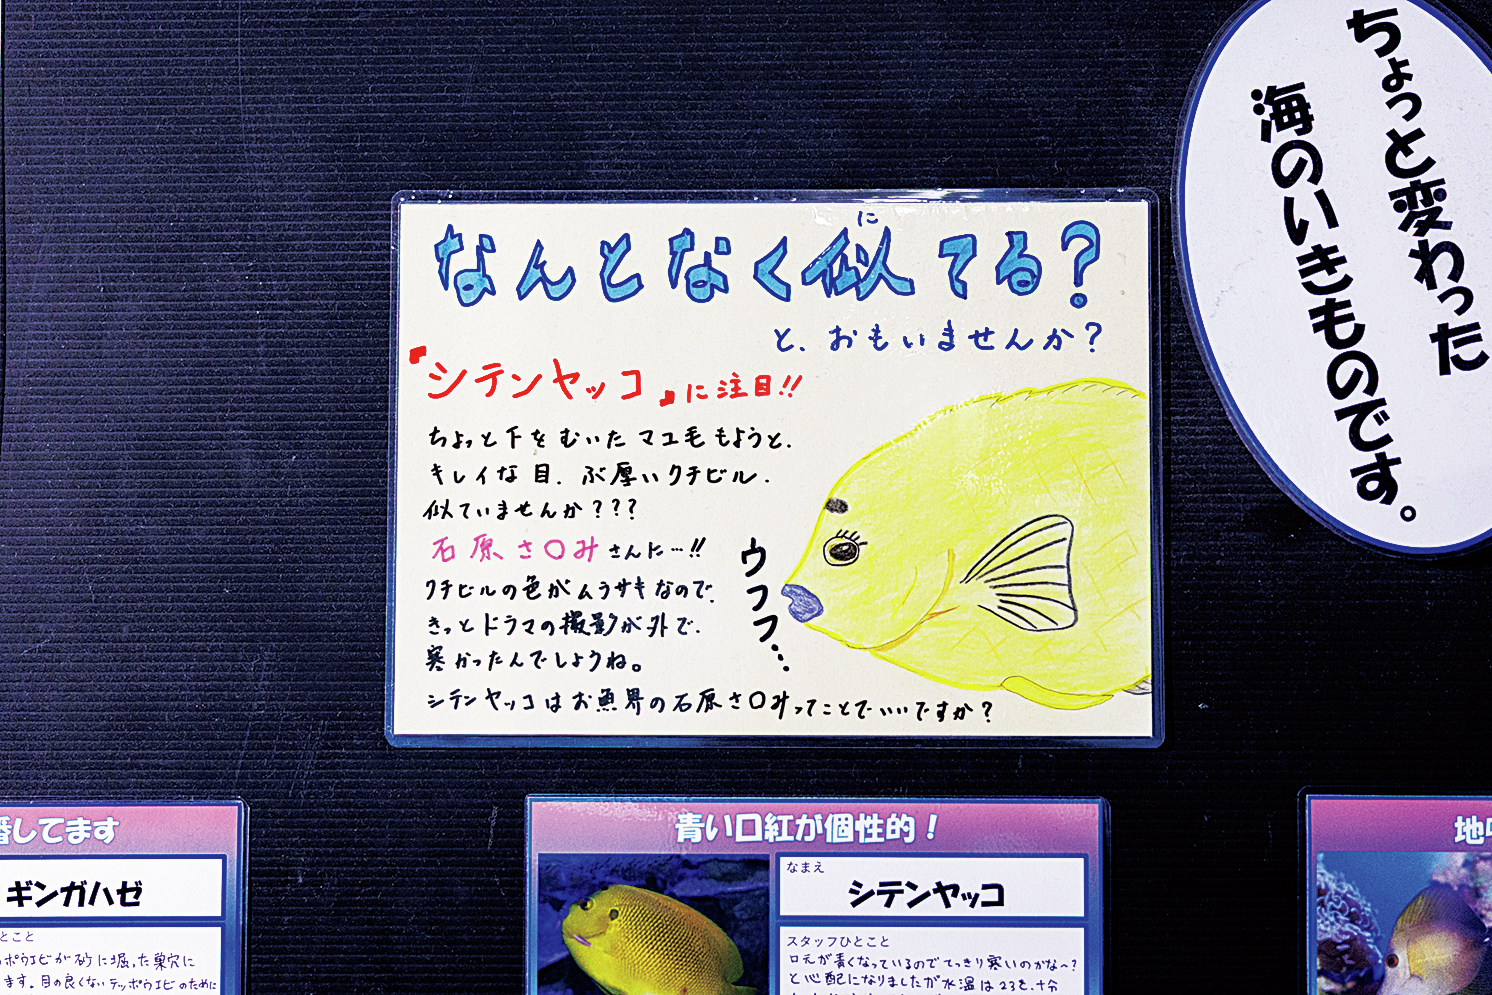 ちょっと変わった
海のいきものです。
に
なんとなく似てる?
と、おもいませんか?
『シテンヤッコ』に注目!!
ちょっと下をむいたマユ毛もようと、
キレイな目、ぶ厚いクチビル、
似ていませんか???
石原さ〇みさんに…!!
クチビルの色がムラサキなので、
きっとドラマの撮影が外で、
寒かったんでしょうね。
シテンヤッコはお魚界の石原さ〇みってことでいいですか?
ウフフ…
してます
ギンガハゼ
とこと
ポウエビが砂に掘った巣穴に
ます。目の良くないテッポウエビのために
青い口紅が個性的!
なまえ
シテンヤッコ
スタッフひとこと
口元が青くなっているのでてっきり寒いのかな〜?
と心配になりましたが水温は23℃、十分
地